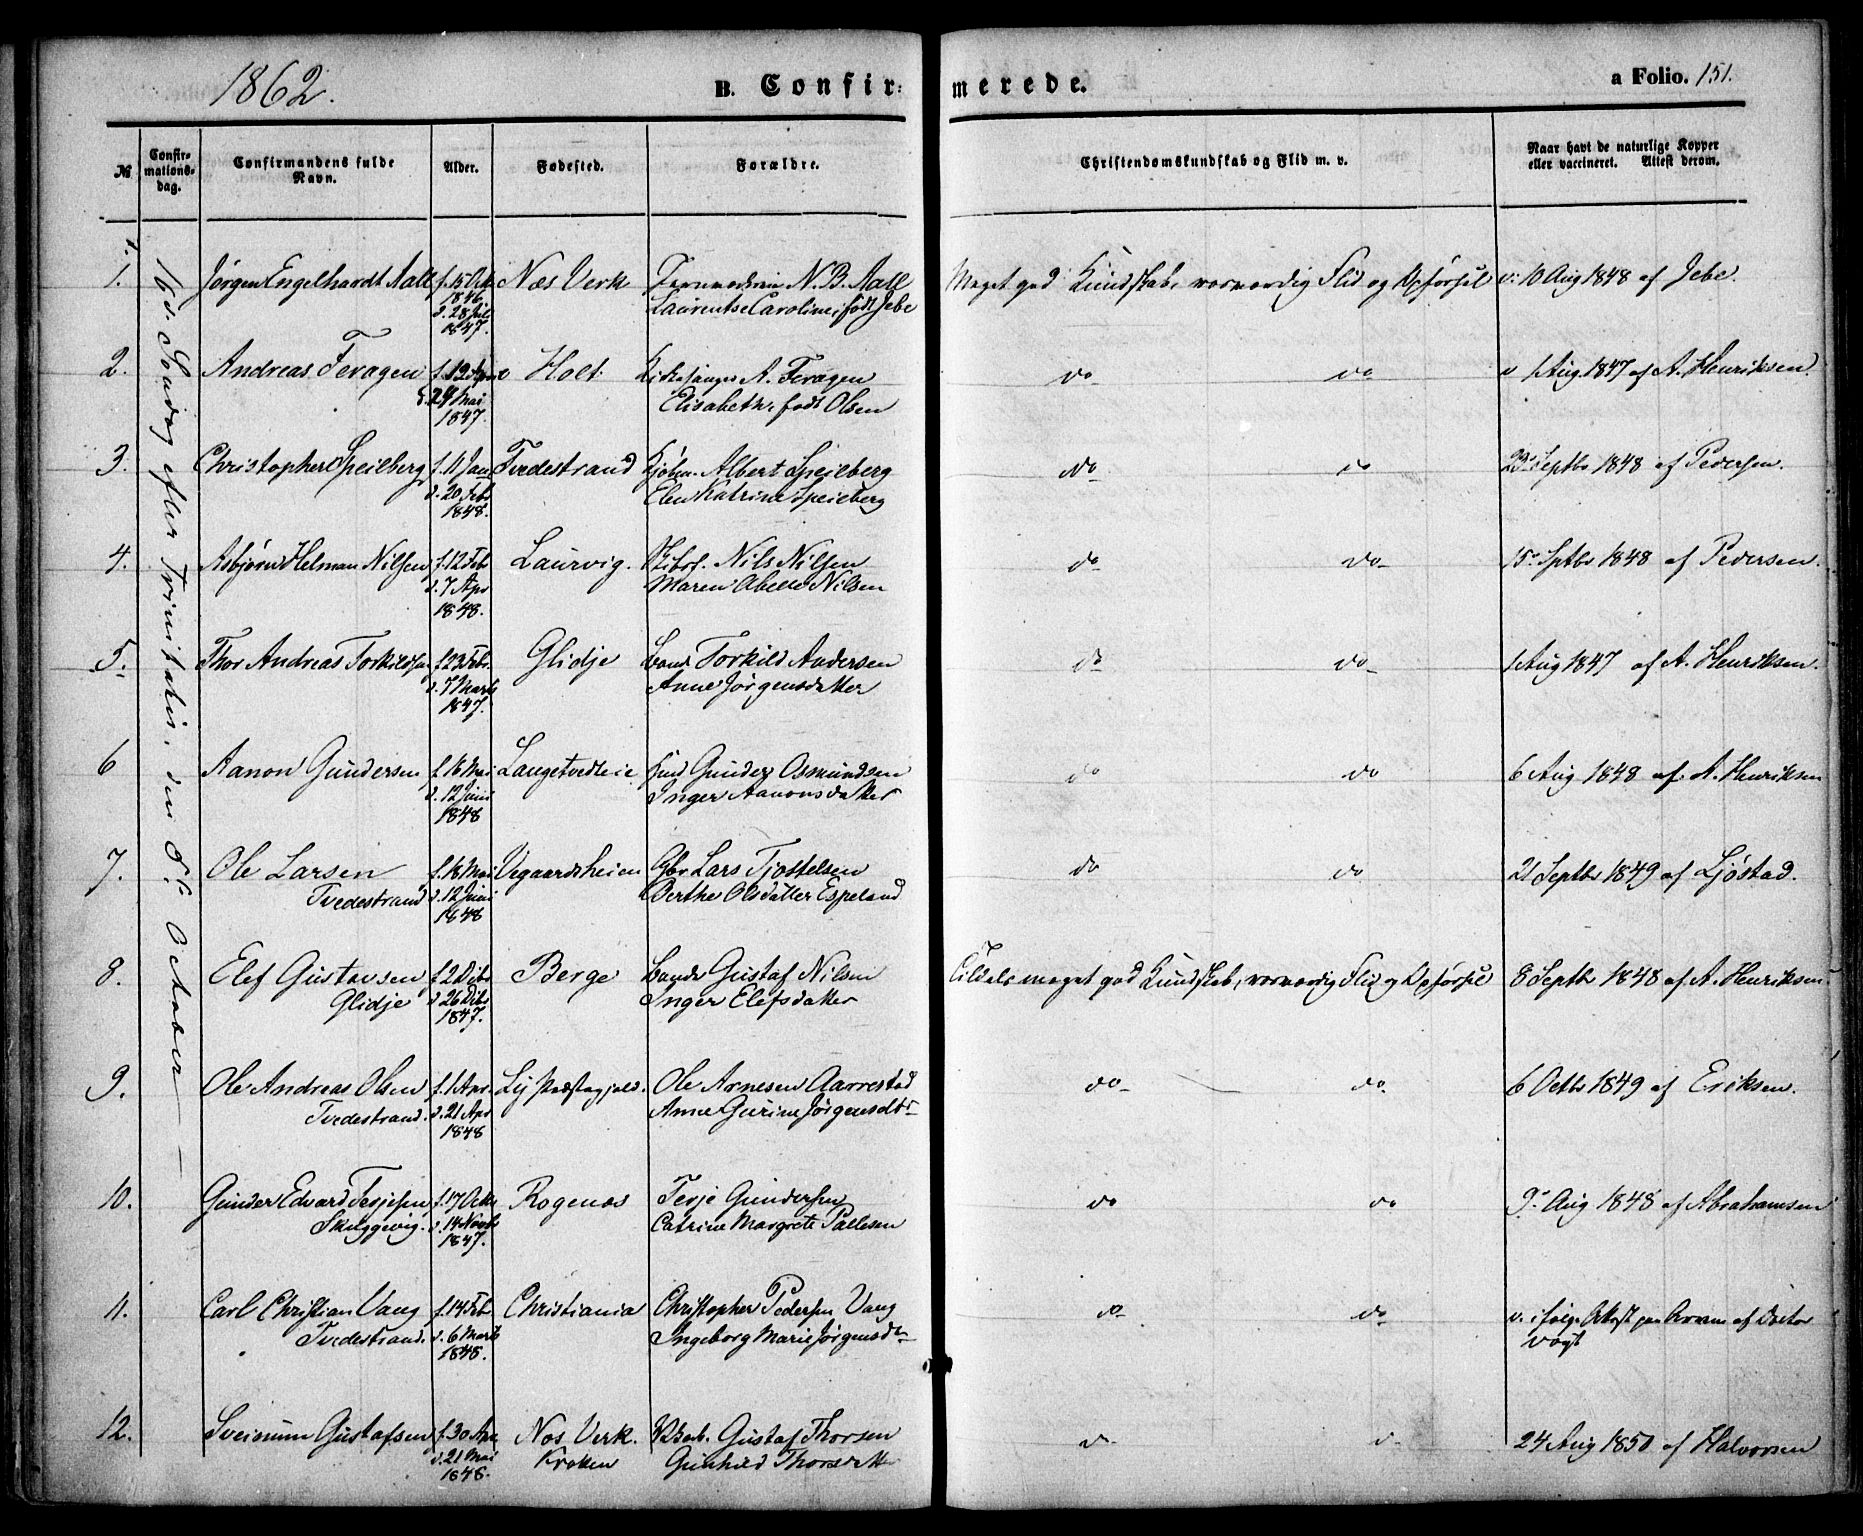 1862.
B. Confirmerede.
a Folio. 151.
№
Confirmationsdag.
Confirmandens fulde Navn.
Alder.
Fødested.
Forældre.
Christendomskundskab og Flid m. v.
Naar havt de naturlige Kopper eller vaccineret. Attest derom.
16 d. Søndag efter Trinitatis, den 5t October
1. Jørgen Engelhardt Aall f. 15 Oct Næs Verk N. B. Aall Meget god Kundskab, Flid og Opførsel v. 10 Aug 1848 af Jebe.
1846 Laurentse Caroline, født Jebe
d. 28 Jul
1847.
2. Andreas Feragen f. 12 Holt Kirkesanger A. Feragen do do v 1 Aug. 1847 af A. Henriksen.
Mai Elisabeth, født Olsen
1847.
3. Christopher Speilberg f. 11 Jan Tvedestrand Kjøbm. Albert Speilberg do do Septbr 1848 af Pedersen.
d. 20 Feb Elen Katrine Speilberg
1848.
4. Asbjørn Helman Nilsen f. 12 Feb Laurvig. Nils Nilsen do do 15 Septbr 1848 af Pedersen.
d. 7 Apr Maren Abelle Nilsen
1848.
5. Thor Andreas Torkildsen f. 23 Febr. Glidje Torkild Andersen do do 1 Aug 1847 af A. Henriksen.
d. 7 Marts Anne Jørgensdatter
1847.
6 Aanon Gundersen f. 16 Mai Langetvedteie Gunder Osmundsen do do 6 Aug 1848 af A. Henriksen
d. 12 Juni Inger Aanonsdatter
1848
7. Ole Larsen f. 16 Mai Vegaardsheien Gbr Lars Tjostelsen do do 21 Septbr 1849 af Ljøstad.
Tvedestrand d. 12 Juni Berthe Olsdatter Espeland
1848
8. Elef Gustavsen f. 2 Dcbr Berge Gustaf Nilsen Tildels meget god Kundskab, Flid og Opførsel 8 Septbr 1848 af A. Henriksen
Glidje d. 26 Dcbr Inger Elefsdatter
1847.
9. Ole Andreas Olsen f. 1 Apr. Præstegjeld. Ole Arnesen Aarrestad do do 6 Octbr 1849 af Eriksen.
Tvedestrand. d. 21 Apr Anne Gurine Jørgensdtr
1848
10. Gunder Edvard Terjesen f. 17 Octbr Rogenæs Terje Gundersen do do 9 Aug 1848 af Abrahamsen
d. 14 Novb Catrine Margrete Pallesen
1847.
11. Carl Christian Vang f. 14 Feb Christiania Christopher Pedersen Vang do do v. ifølge Attest paa Arren af Doctor
Tvedestrand. d. 6 Marts Ingeborg Marie Jørgensdr Vogt
1848.
12. Sveinum Gustafsen f. 30 Apr Nes Verk. Gustaf Thorsen do do 24 Aug 1850 af Halvorsen
d. 21 Mai Kroken Gunhild Thorsdatter
1848.